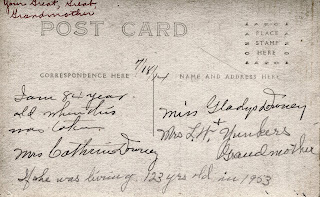 Your Great, Great,
Grandmother
POST CARD
PLACE
STAMP
HERE
7/18/14
CORRESPONDENCE HERE
NAME AND ADDRESS HERE
I am 84 year
old when this
was taken
Mrs Cathrine Downey
Miss Gladys Downey
Mrs L.H. Yunkers
Grandmother
If she was living, 123 yrs old in 1953